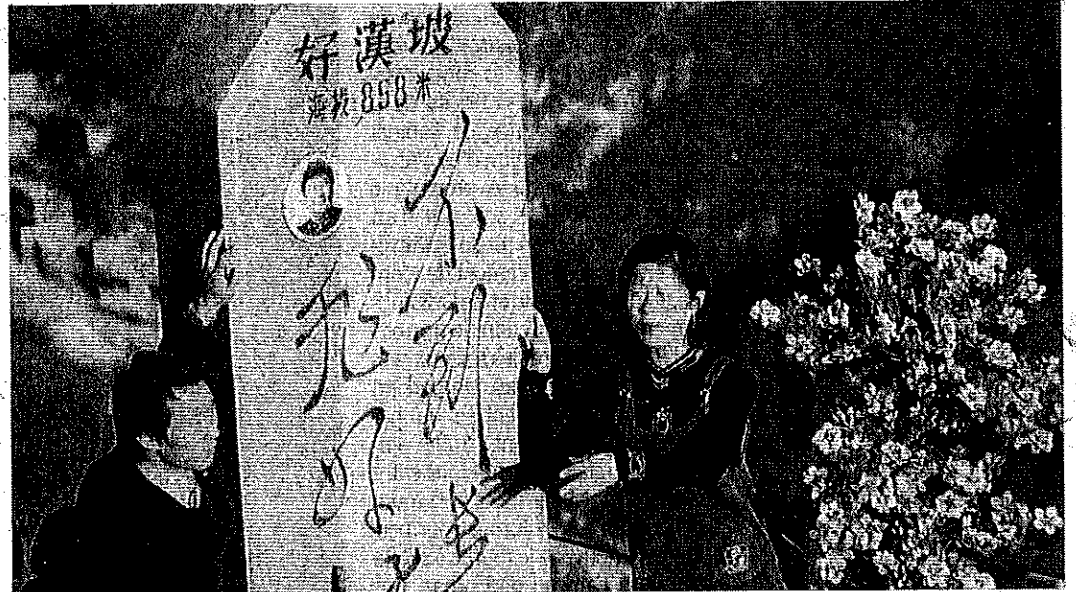 好漢坡
海拔:858米
不到长
非好